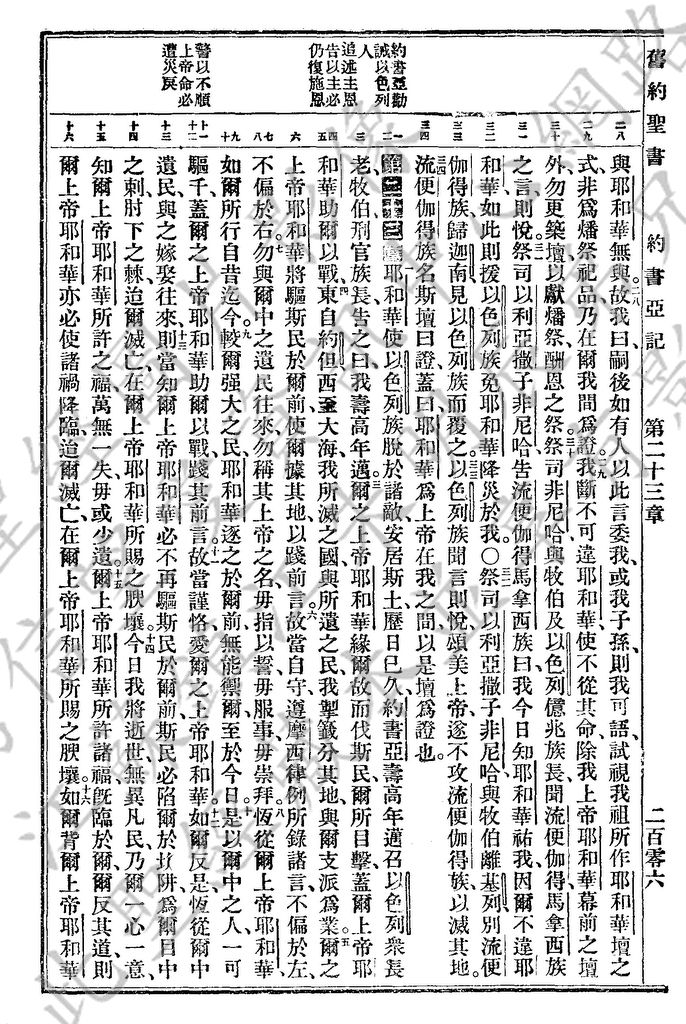 舊約聖書　約書亞記　第二十三章　二百零六
約書亞勸
誡以色列
人
追述主恩
告以主必
仍復施恩
警以不順
上帝命必
遭災戾
二八 二九 三十 三一 三二 三三 三四 一 二 三 四五 六 七八 九十 十一十二 十三 十四 十五 十六
與耶和華無與、故我曰、嗣後如有人以此言委我、或我子孫、則我可語、試視我祖所作耶和華壇之
式、非爲燔祭祀品、乃在爾我間爲證、我斷不可違耶和華、使不從其命、除我上帝耶和華幕前之壇
外、勿更築壇、以獻燔祭酬恩之祭、祭司非尼哈、與牧伯、及以色列億兆族長、聞流便伽得馬拿西族
之言則悅、祭司以利亞撒子非尼哈、告流便伽得馬拿西族曰、我今日知耶和華祐我、因爾不違耶
和華、如此則援以色列族、免耶和華降災於我○祭司以利亞撒子非尼哈、與牧伯離基列、別流便
伽得族、歸迦南、見以色列族而覆之、以色列族聞言則悅、頌美上帝、遂不攻流便伽得族、以滅其地。
流便伽得族名斯壇曰證、蓋曰耶和華爲上帝、在我之間、以是壇爲證也。
第二十三章 耶和華使以色列族脫於諸敵、安居斯土、歷日已久、約書亞壽高年邁、召以色列衆長
老牧伯刑官族長告之曰、我壽高年邁、爾之上帝耶和華緣爾故而伐斯民、爾所目擊、蓋爾上帝耶
和華助爾以戰、東自約但、西至大海、我所滅之國、與所遺之民、我掣籤分其地、與爾支派爲業、爾之
上帝耶和華將驅斯民於爾前、使爾據其地、以踐前言、故當自守、遵摩西律例所錄諸言、不偏於左、
不偏於右、勿與爾中之遺民往來、勿稱其上帝之名、毋指以誓、毋服事、毋崇拜、恆從爾上帝耶和華、
如爾所行、自昔迄今、較爾强大之民、耶和華逐之於爾前、無能禦爾、至於今日、是以爾中之人、一可
驅千、蓋爾之上帝耶和華助爾以戰、踐其前言、故當謹恪、愛爾之上帝耶和華、如爾反是、恆從爾中
遺民、與之嫁娶往來、則當知爾上帝耶和華、必不再驅斯民於爾前、斯民必陷爾於坎阱、爲爾目中
之刺、肘下之棘、迨爾滅亡、在爾上帝耶和華所賜之腴壤、今日我將逝世、無異凡民、乃爾一心一意、
知爾上帝耶和華所許之福、萬無一失、毋或少遺、爾上帝耶和華所許諸福、旣臨於爾、爾反其道、則
爾上帝耶和華亦必使諸禍降臨、迨爾滅亡、在爾上帝耶和華所賜之腴壤、如爾背爾上帝耶和華